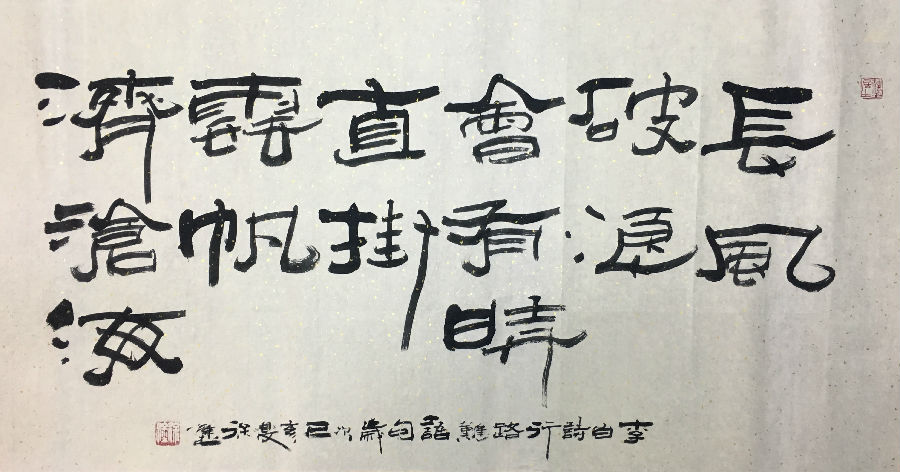 長風
破浪
會有時
直掛
雲帆
濟滄海
李白詩行路難語句歲次己亥夏